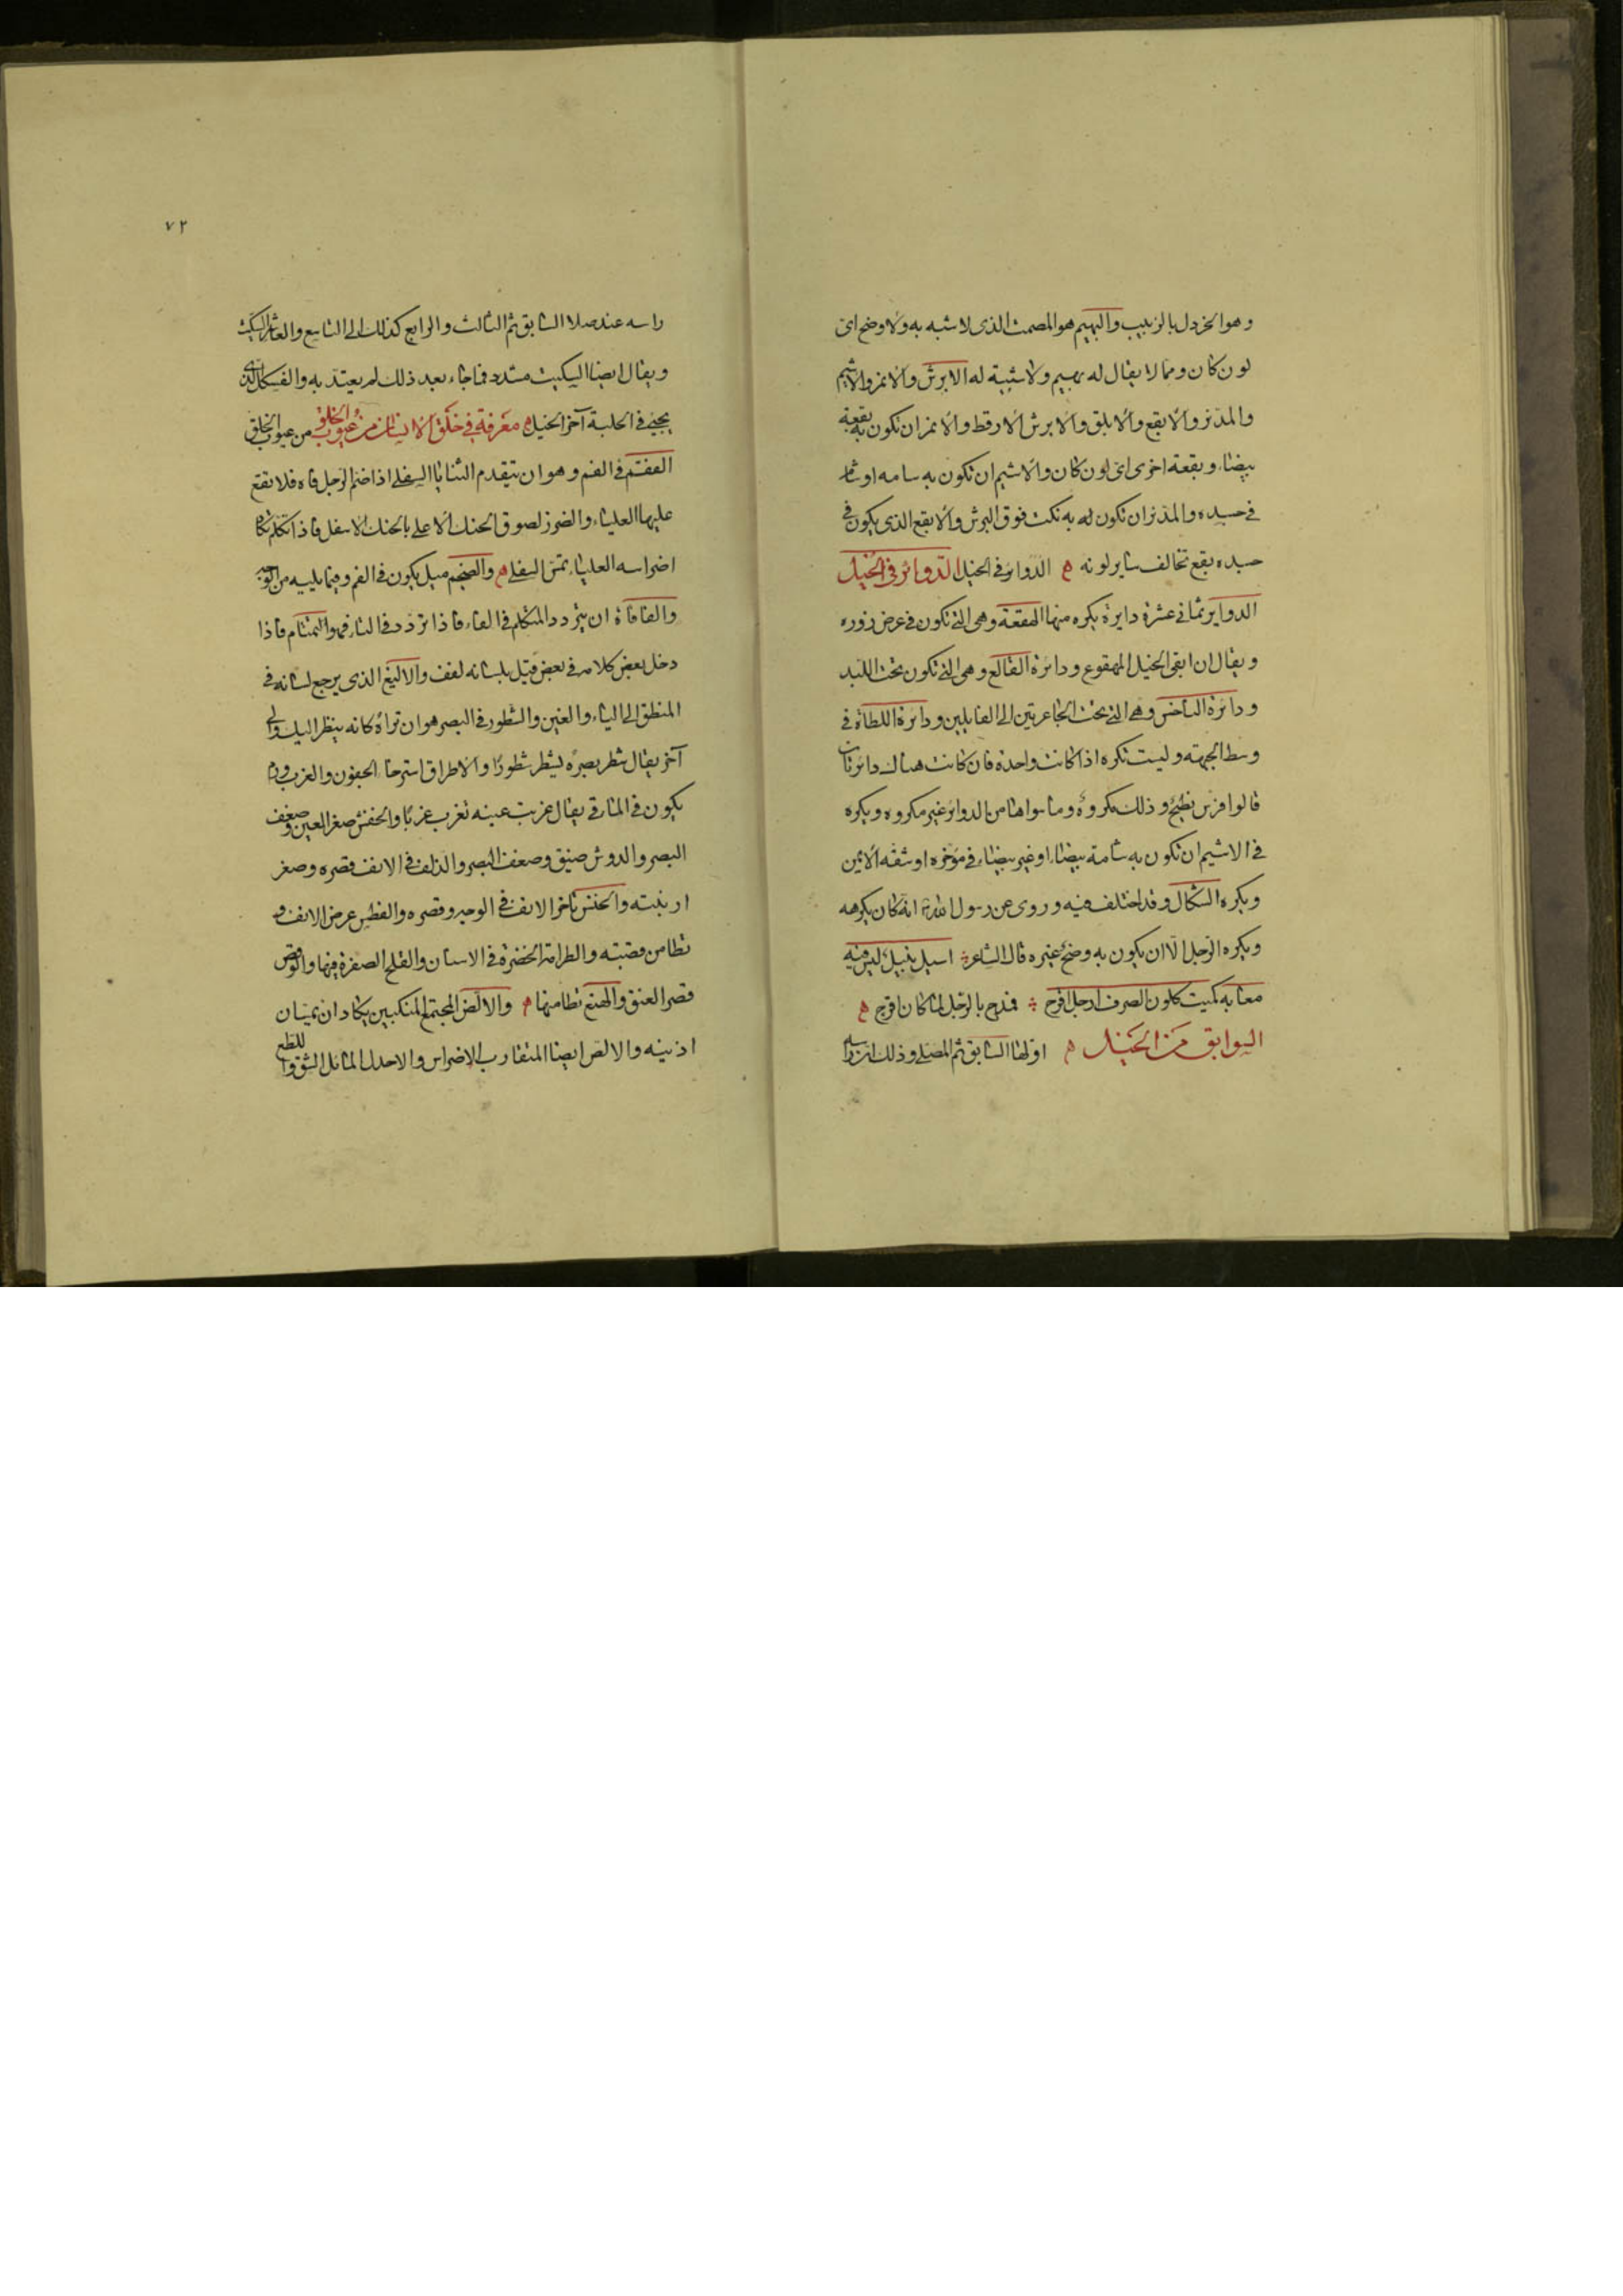 وهو الخردل بالزبيب والبهيم هو المصمت الذى لا شبه به ولا وضح اى
لون كان ومما لا يقال له بهيم ولا شية له الابرش والانمر والاشيم
والمدنر والابقع والابلق والابرش الارقط والانمر ان تكون به بقعة
بيضاء وبقعة اخرى اى لون كان والاشيم ان تكون به شامه او شام
فى جسده والمدنر ان تكون له به نكت فوق البرش والابقع الذى يكون فى
جسده بقع تخالف ساير لونه الدوائر فى الخيل الدوائر فى الخيل
الدواير ثمانى عشرة دايرة يكره منها الهقعة وهى التى تكون فى عرض زوره
ويقال ان ابقى الخيل المهقوع ودائرة القالع وهى التى تكون تحت اللبد
ودائرة الناخس وهى التى تحت الجاعرتين الى الفايلين ودائرة اللطاة فى
وسط الجبهة وليست تكره اذا كانت واحدة فان كانت هناك دائرتان
قالوا فرس نطيح وذلك مكروه وما سواها من الدوائر غير مكروه ويكره
فى الاشيم ان تكون به شامة بيضاء او غير بيضاء فى مؤخره او شقه الايمن
ويكره الشكال وقد اختلف فيه وروى عن رسول الله انه كان يكرهه
ويكره الرجل الا ان يكون به وضح غيره قال الشاعر اسيل نبيل ليس فيه
معابه كميت كلون الصرف ارجل اقرح فمدح بالرجل لما كان اقرح
السوابق من الخيل اولها السابق ثم المصلى وذلك ان راسه
٧٢
راسه عند صلا السابق ثم الثالث والرابع كذلك الى التاسع والعاشر السكيت
ويقال ايضا السكيت مشدد فما جاء بعد ذلك لم يعتد به والفسكل الذى
يجئ فى الحلبة آخر الخيل معرفة فى خلق الانسان من عيوب الخلق من عيوب الخلق
الفقم فى الفم وهو ان تتقدم الثنايا السفلى اذا ضم الرجل فاه فلا تقع
عليها العلياء والضزز لصوق الحنك الاعلى بالحنك الاسفل فاذا تكلم تكاد
اضراسه العلياء تمس السفلى والضجم ميل يكون فى الفم وفيما يليه من الوجه
والفافاة ان يتردد المتكلم فى الفاء فاذا تردد فى التاء فهو التمتام فاذا
دخل بعض كلامه فى بعض قيل بلسانه لفف والاليغ الذى يرجع لسانه فى
المنطق الى الياء والغين والشطور فى البصر هو ان تراه كانه ينظر اليك والى
آخر يقال شطر بصره يشطر شطورا والاطراق استرخاء الجفون والغرب ورم
يكون فى الماق يقال غربت عينه تغرب غربا والخفش صغر العين وضعف
البصر والدوش ضيق وضعف البصر والذلف فى الانف قصره وصغر
ارنبته والخنس تاخر الانف فى الوجه وقصره والفطس عرض الانف و
تطامن قصبته والطرامة الخضرة فى الاسنان والقلح الصفرة فيها والوقص
قصر العنق والهنع تطامنها والالص المجتمع المنكبين يكادان يمسان
اذنيه والالص ايضا المتقارب الاضراس والاحدل المائل الشق و